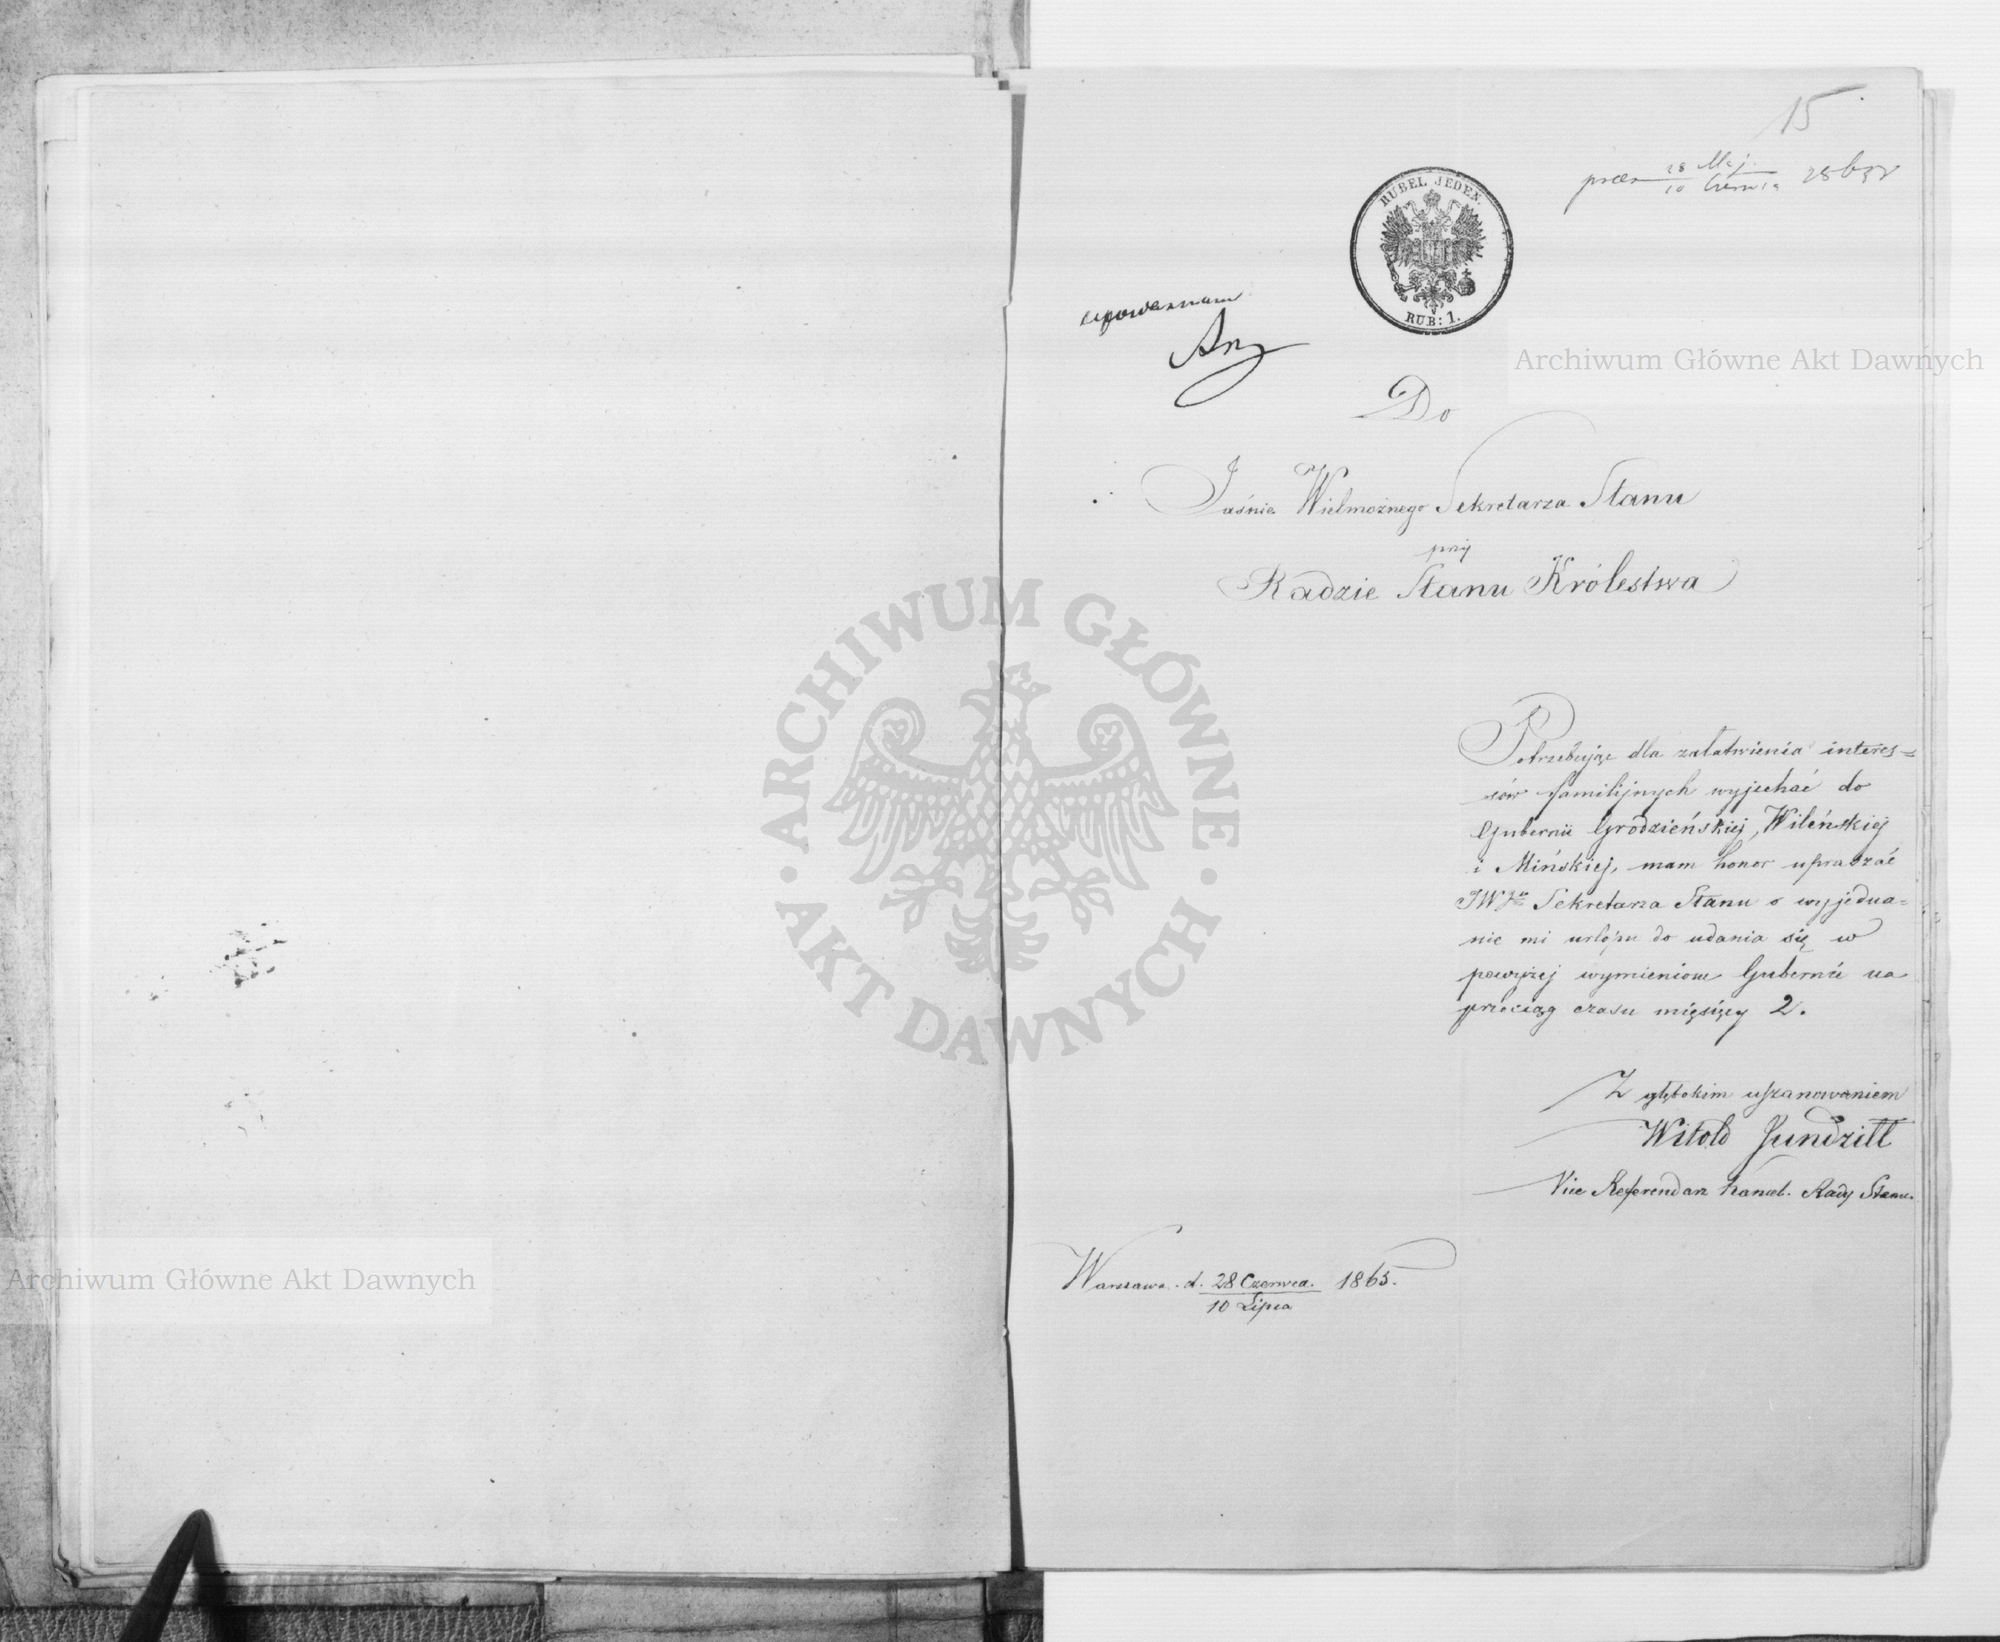 15
28 Maj.
10 Czerwca
RUBEL JEDEN.
RUB: 1.
upoważniam
Do
Jaśnie Wielmożnego Sekretarza Stanu
przy
Radzie Stanu Królestwa
Potrzebując dla załatwienia interes=
sów familijnych wyjechać do
Gubernii Grodzieńskiej, Wileńskiej
i Mińskiej, mam honor upraszać
JWgo Sekretarza Stanu o wyjedna=
nie mi urlopu do udania się w
powyżej wymienione Gubernie na
przeciąg czasu miesięcy 2.
Z głębokim uszanowaniem
Witold Jundziłł
Vice Referendarz Kancel. Rady Stanu.
Warszawa. d. 28 Czerwca. 1865.
10 Lipca
Archiwum Główne Akt Dawnych
ARCHIWUM GŁÓWNE
AKT DAWNYCH
Archiwum Główne Akt Dawnych